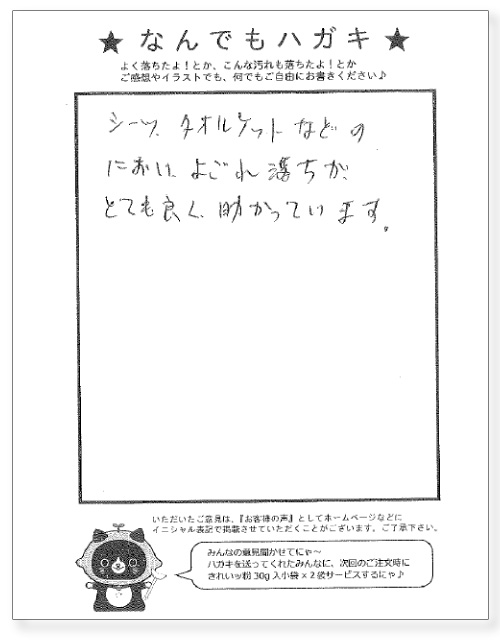 ★なんでもハガキ★
よく落ちたよ！とか、こんな汚れも落ちたよ！とか
ご感想やイラストでも、何でもご自由にお書きください♪
シーツ、タオルケットなどの
におい、よごれ落ちが、
とても良く、助かっています。
いただいたご意見は、『お客様の声』としてホームページなどに
イニシャル表記で掲載させていただくことがございます。ご了承下さい。
みんなの意見聞かせてにゃ～
ハガキを送ってくれたみんなに、次回のご注文時に
きれいッ粉 30g 入小袋×2袋サービスするにゃ♪